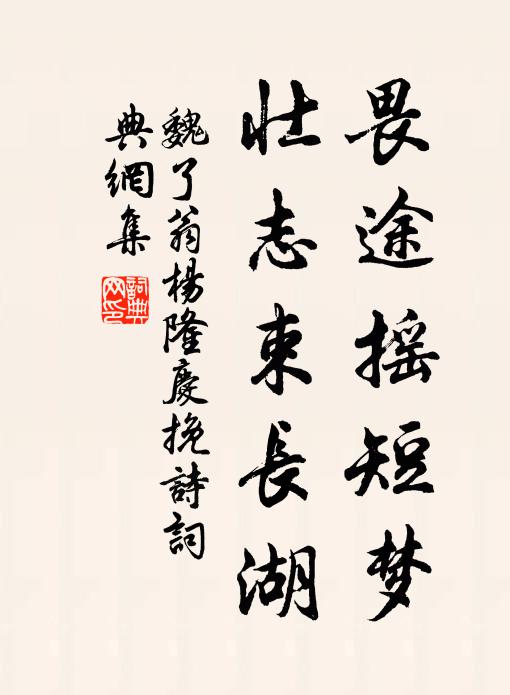 畏途摇短梦
壮志束長湖
魏了翁楊隆慶挽詩詞
典網集
詞典网印